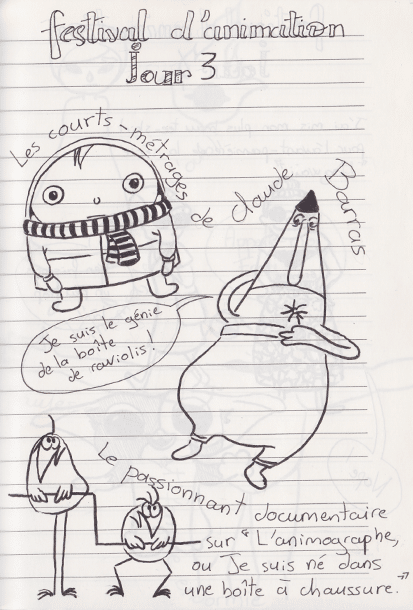 festival d'animation
Jour 3
Les courts-métrages de claude Barras
Je suis le génie
de la boîte
de raviolis !
Le passionnant documentaire
sur "L'animographe,
ou Je suis né dans
une boîte à chaussure."